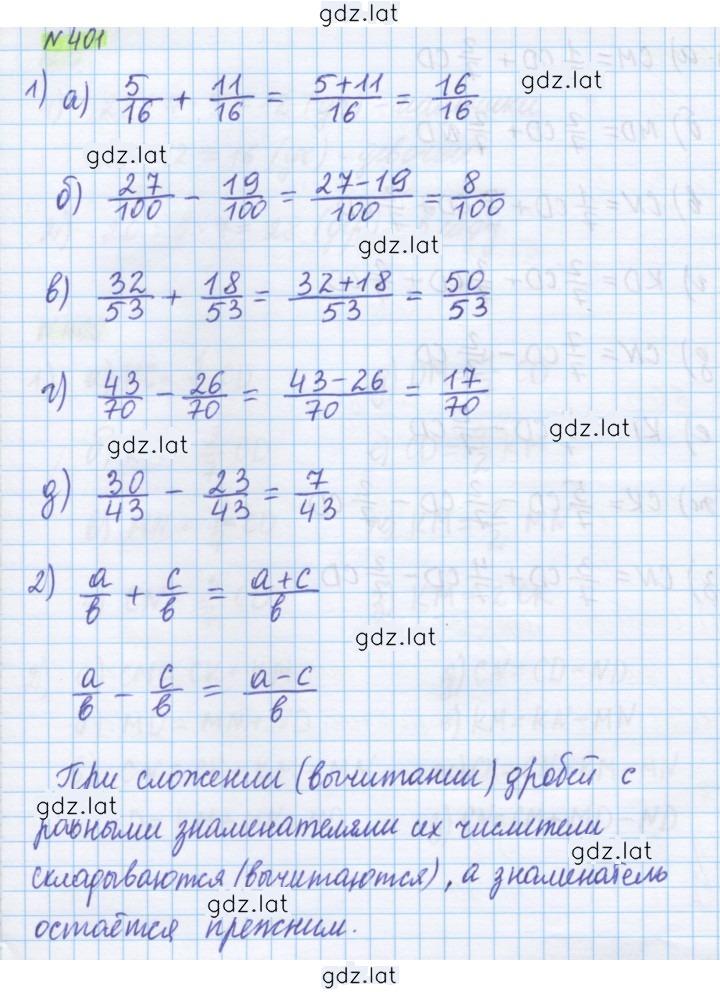 gdz.lat
N 401
1) а) 5/16 + 11/16 = 5+11/16 = 16/16
gdz.lat
gdz.lat
б) 27/100 - 19/100 = 27-19/100 = 8/100
gdz.lat
в) 32/53 + 18/53 = 32+18/53 = 50/53
г) 43/70 - 26/70 = 43-26/70 = 17/70
gdz.lat
gdz.lat
д) 30/43 - 23/43 = 7/43
2) a/b + c/b = a+c/b
gdz.lat
a/b - c/b = a-c/b
При сложении (вычитании) дробей с
gdz.lat
равными знаменателями их числители
gdz.lat
складываются (вычитаются), а знаменатель
gdz.lat
остаётся прежним.
gdz.lat